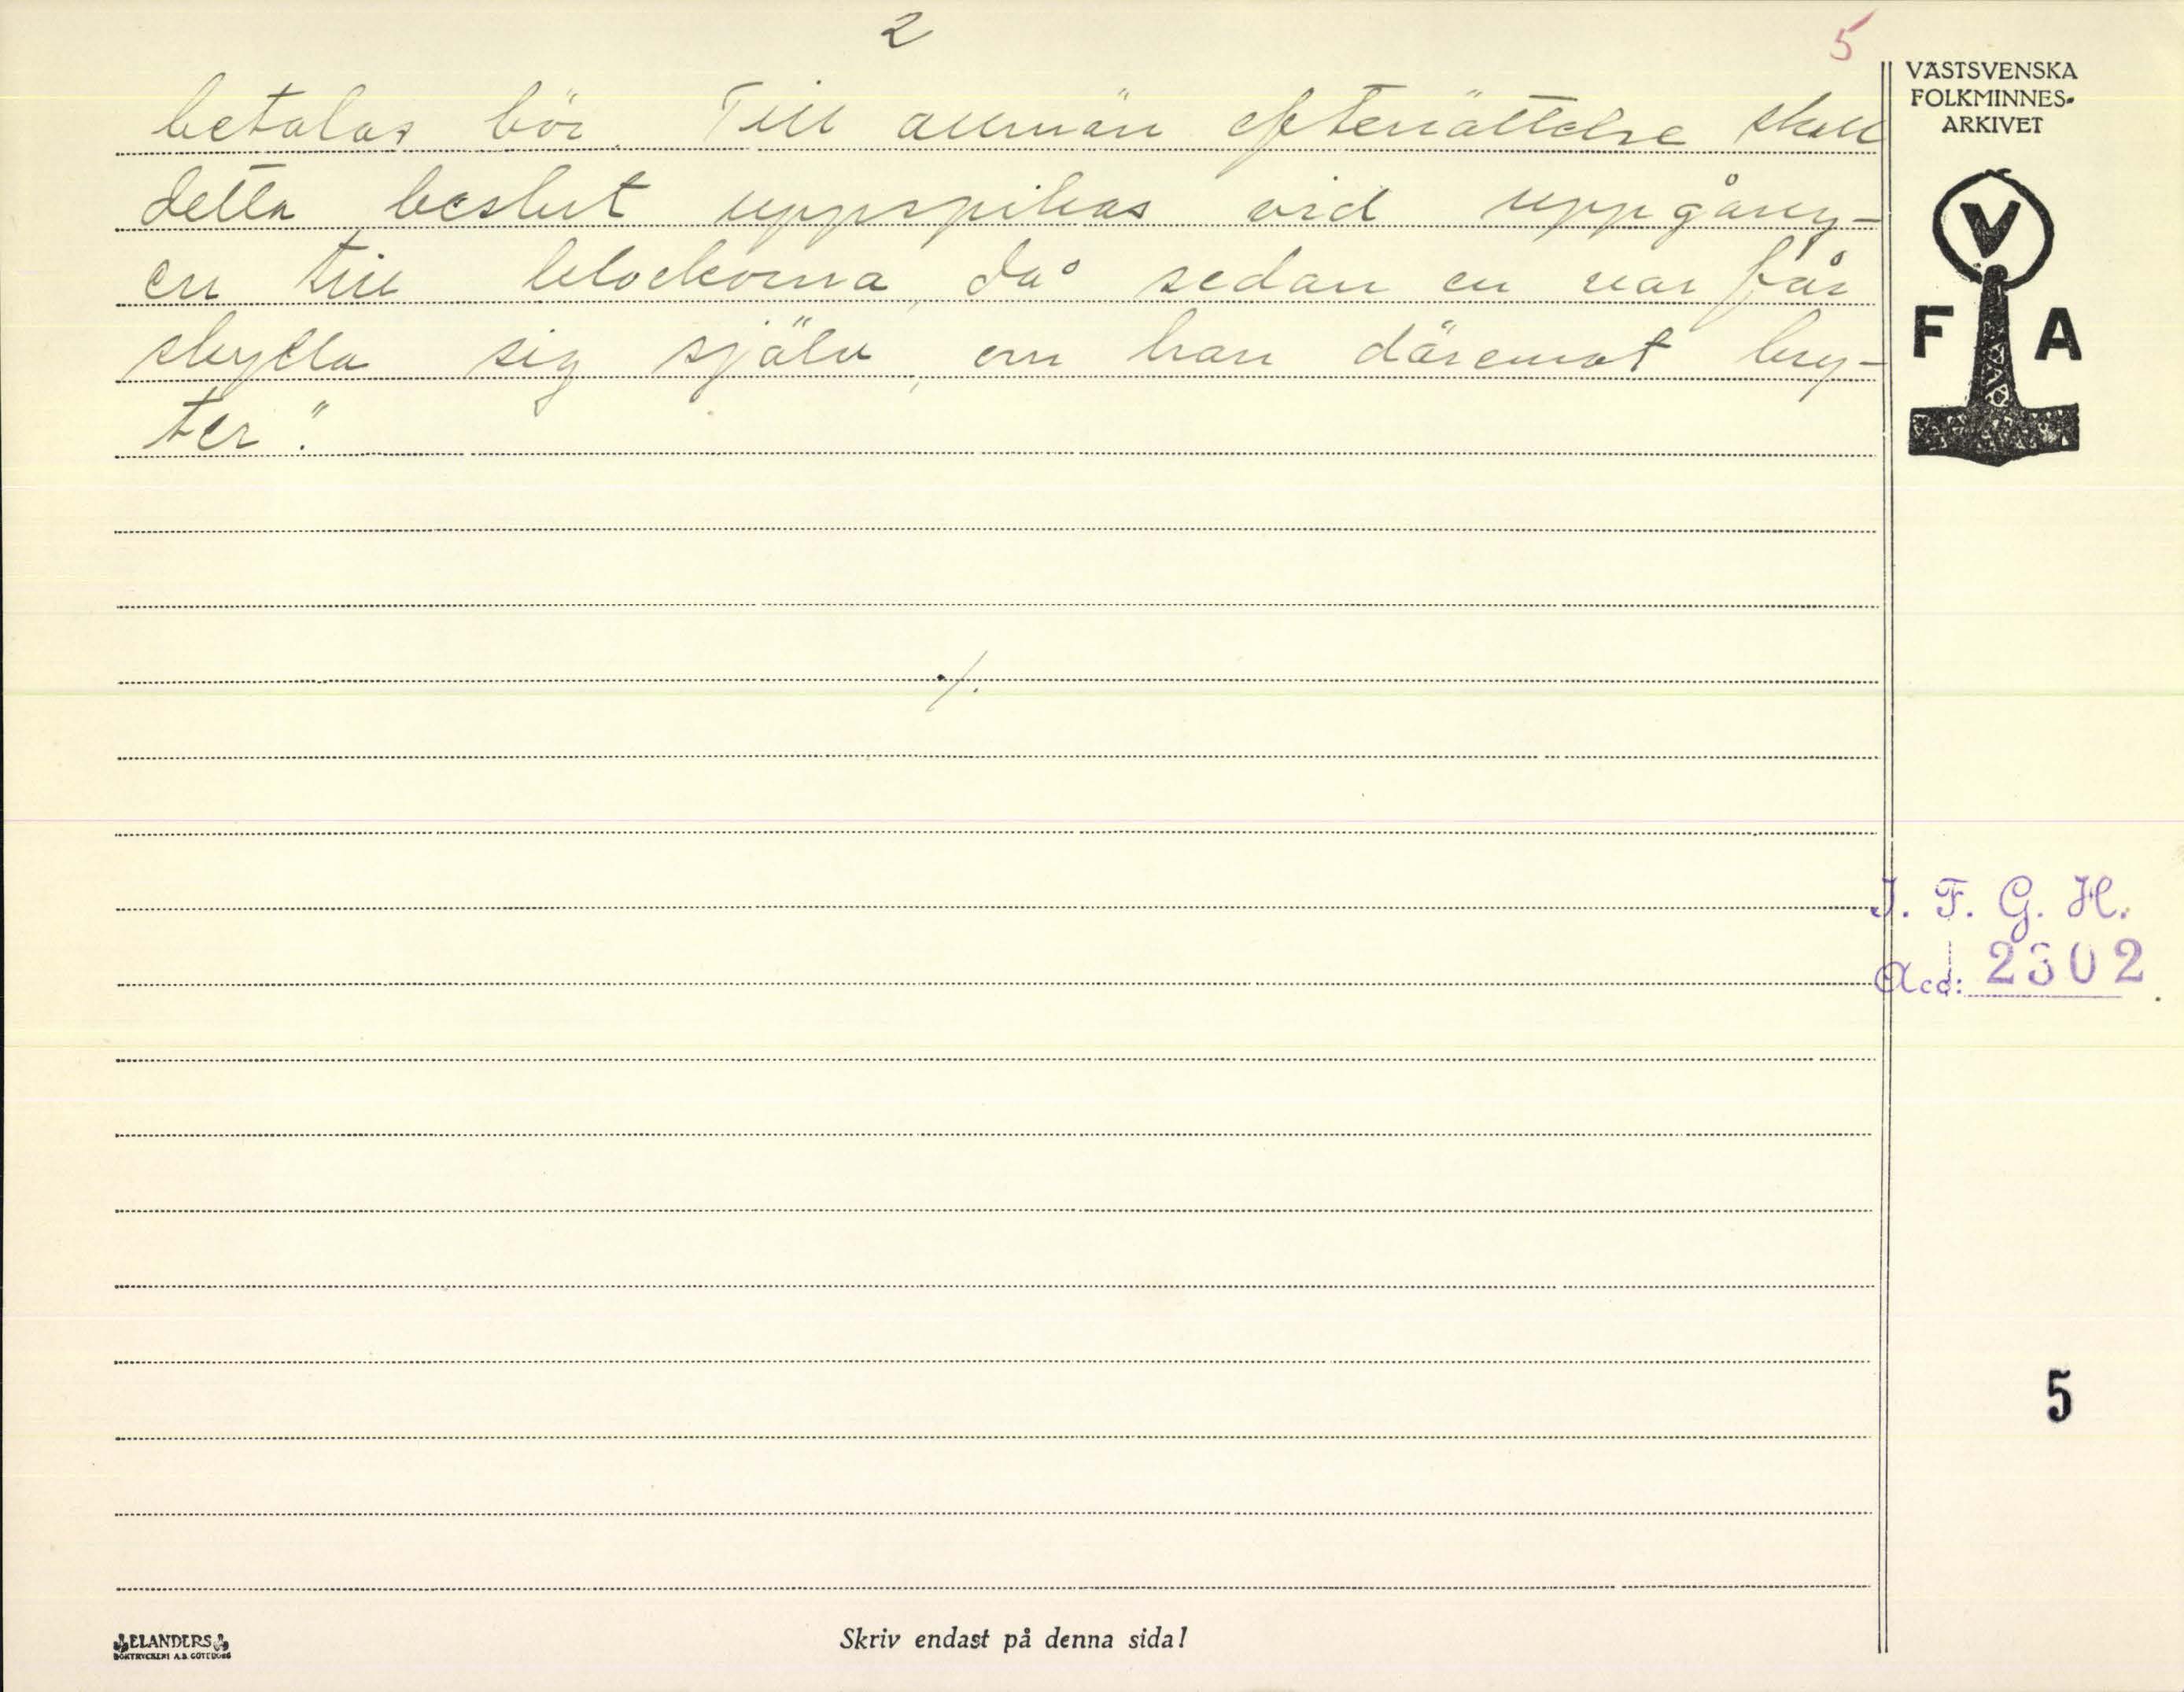 2
5
betalas bör. Till allmän efterrättelse skall
detta beslut uppspikas vid uppgång-
en till klockorna, då sedan en var får
skylla sig själv, om han däremot bry-
ter."
./.
VÄSTSVENSKA
FOLKMINNES-
ARKIVET
V
F A
I. F. G. H.
Acc: 2302
5
ELANDERS
BOKTRYCKERI A.B. GÖTEBORG
Skriv endast på denna sida!